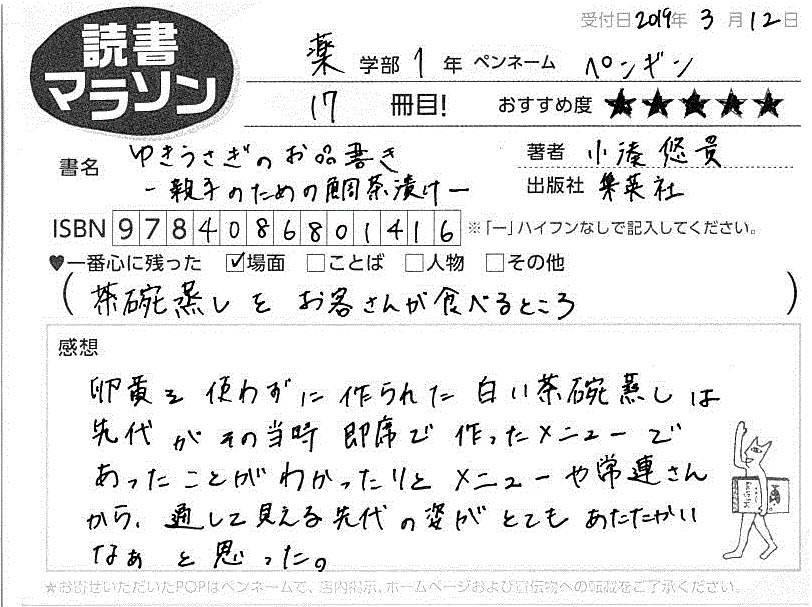 読書
マラソン
受付日2019年3月12日
薬学部1年 ペンネーム ペンギン
17冊目! おすすめ度 ★★★★★
書名 ゆきうさぎのお品書き
-親子のための鯛茶漬け-
著者 小湊悠貴
出版社 集英社
ISBN 9784086801416 ※「-」ハイフンなしで記入してください。
♥一番心に残った ☑場面 □ことば □人物 □その他
(茶碗蒸しをお客さんが食べるところ)
感想
卵黄を使わずに作られた白い茶碗蒸しは
先代がその当時即席で作ったメニューで
あったことがわかったりとメニューや常連さん
から、通して見える先代の姿がとてもあたたかい
なぁと思った。
★お寄せいただいたPOPはペンネームで、店内掲示、ホームページおよび宣伝物への転載をご了承ください。